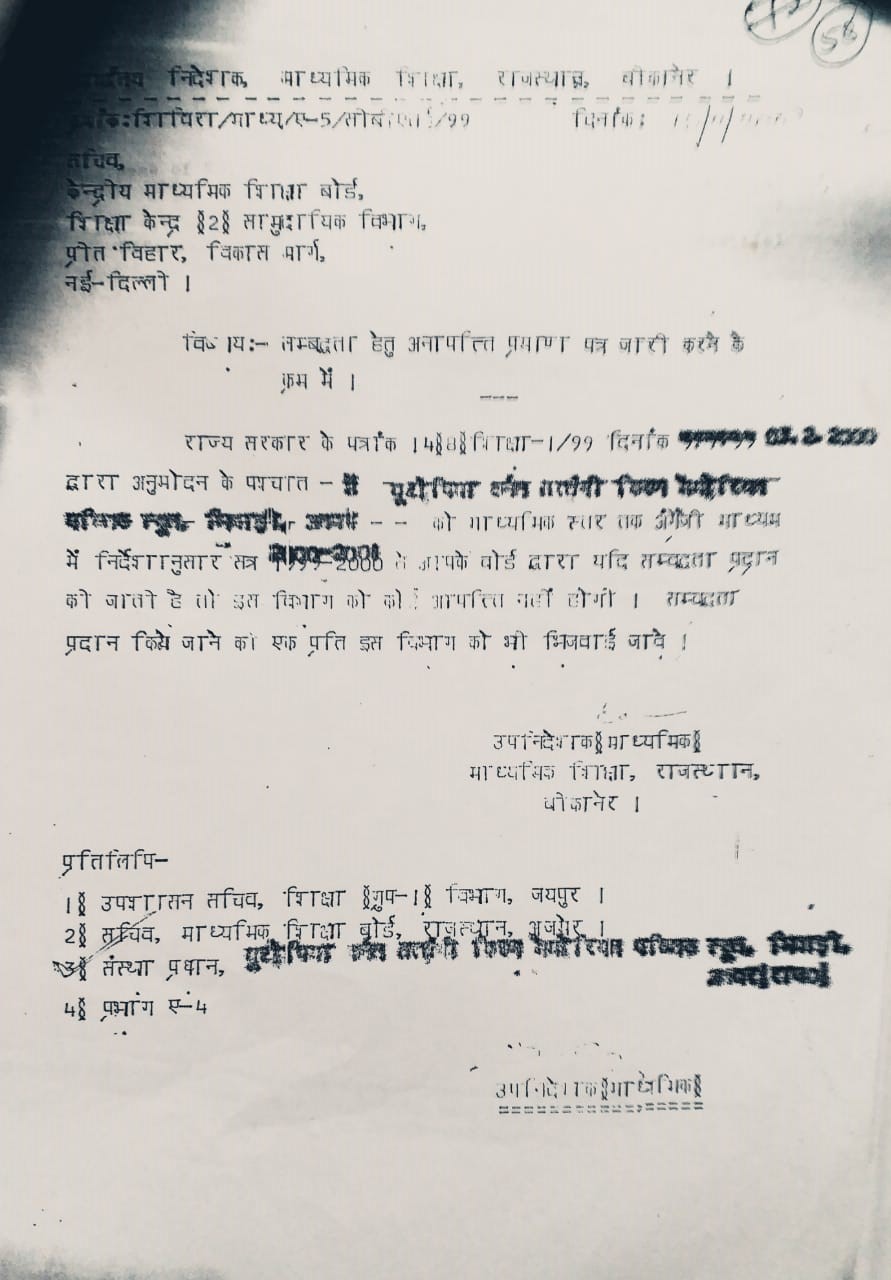 58
निदेशक, माध्यमिक शिक्षा, राजस्थान, बीकानेर ।
क्रमांक:शिविरा/माध्य/ए-5/सीबीएसई/99 दिनांक:
सचिव,
केन्द्रीय माध्यमिक शिक्षा बोर्ड,
शिक्षा केन्द्र §2§ सामुदायिक विभाग,
प्रीत विहार, विकास मार्ग,
नई-दिल्ली ।
विषय:- सम्बद्वता हेतु अनापत्ति प्रमाण पत्र जारी करने के
क्रम में ।
राज्य सरकार के पत्रांक 14§8§शिक्षा-1/99 दिनांक 03.2.2000
द्वारा अनुमोदन के पश्चात -
पब्लिक स्कूल, भिवाड़ी, अलवर - - को माध्यमिक स्तर तक अंग्रेजी माध्यम
में निर्देशानुसार सत्र 2000-2001 से आपके बोर्ड द्वारा यदि सम्बद्वता प्रदान
की जाती है तो इस विभाग को कोई आपत्ति नहीं होगी । सम्बद्वता
प्रदान किये जाने की एक प्रति इस विभाग को भी भिजवाई जावे ।
उपनिदेशक§माध्यमिक§
माध्यमिक शिक्षा, राजस्थान,
बीकानेर ।
प्रतिलिपि-
1§ उपशासन सचिव, शिक्षा §ग्रुप-1§ विभाग, जयपुर ।
2§ सचिव, माध्यमिक शिक्षा बोर्ड, राजस्थान, अजमेर ।
3§ संस्था प्रधान, पब्लिक स्कूल, भिवाड़ी,
4§ प्रभाग ए-4
उपनिदेशक§माध्यमिक§